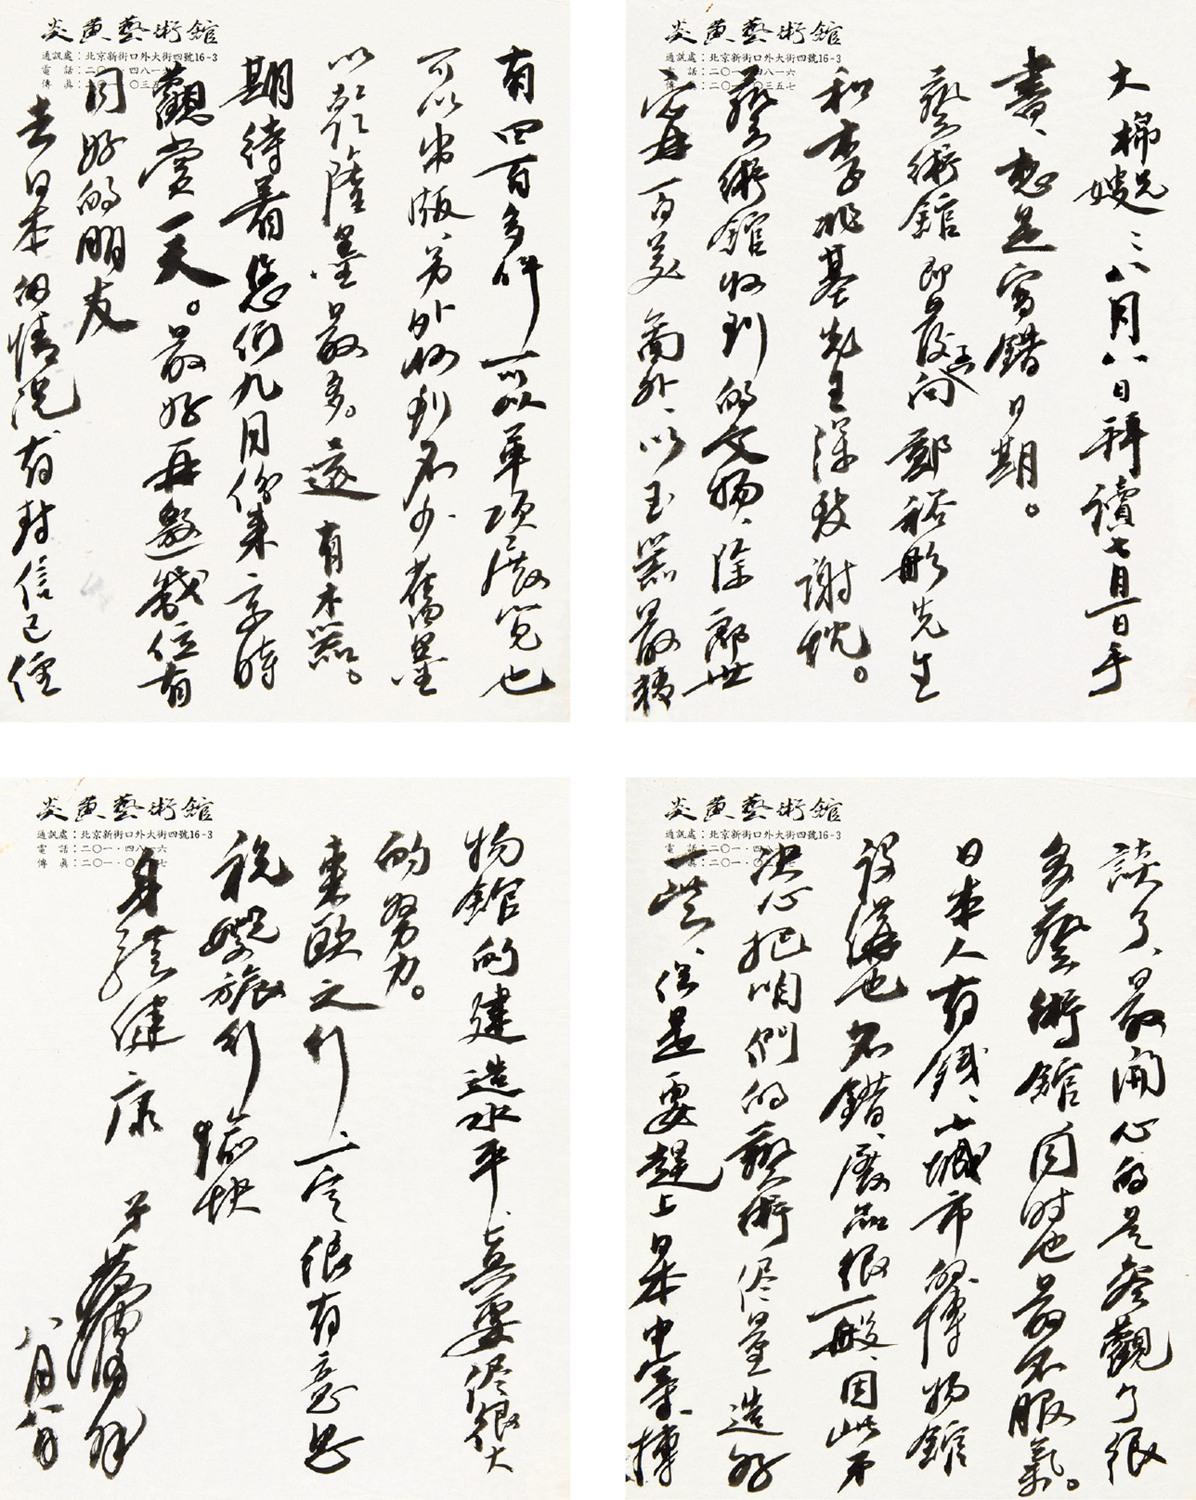 炎黃藝術館
通訊處：北京新街口外大街四號16-3
電　話：二〇一·四八一六
傳　真：二〇一·〇三五七
大棉兄嫂：八月八日拜讀七月一日手
書、想是寫錯日期。
藝術館即向鄭裕彤先生
和李兆基先生深致謝忱。
藝術館收到的文物、除郎世
寧百美圖外、以玉器最精
炎黃藝術館
通訊處：北京新街口外大街四號16-3
電　話：二〇一·四八一
傳　真：二〇三五
有四百多件可以單項展覽也
可以出版、另外收到不少舊墨
以乾隆墨最多。還有木器。
期待着您们九月份来京時
觀賞一天。最好再邀幾位有
同好的朋友
去日本的情况有封信已經
炎黃藝術館
通訊處：北京新街口外大街四號16-3
電　話：二〇一·四
傳　真：二〇一·〇
談了、最開心的是參觀了很
多藝術館同时也最不服氣。
日本人有錢、小城市的博物館
設備也不錯、展品很一般、因此才
決心把咱們的藝術侭量造好
一些、但是要趕上日本中等博
炎黃藝術館
通訊處：北京新街口外大街四號16-3
電　話：二〇一·四八一六
傳　真：二〇一·〇七
物館的建造水平、真要侭很大
的努力。
東歐之行一定很有意思
祝兄嫂旅行愉快
身體健康
弟黃胄拜
八月八日